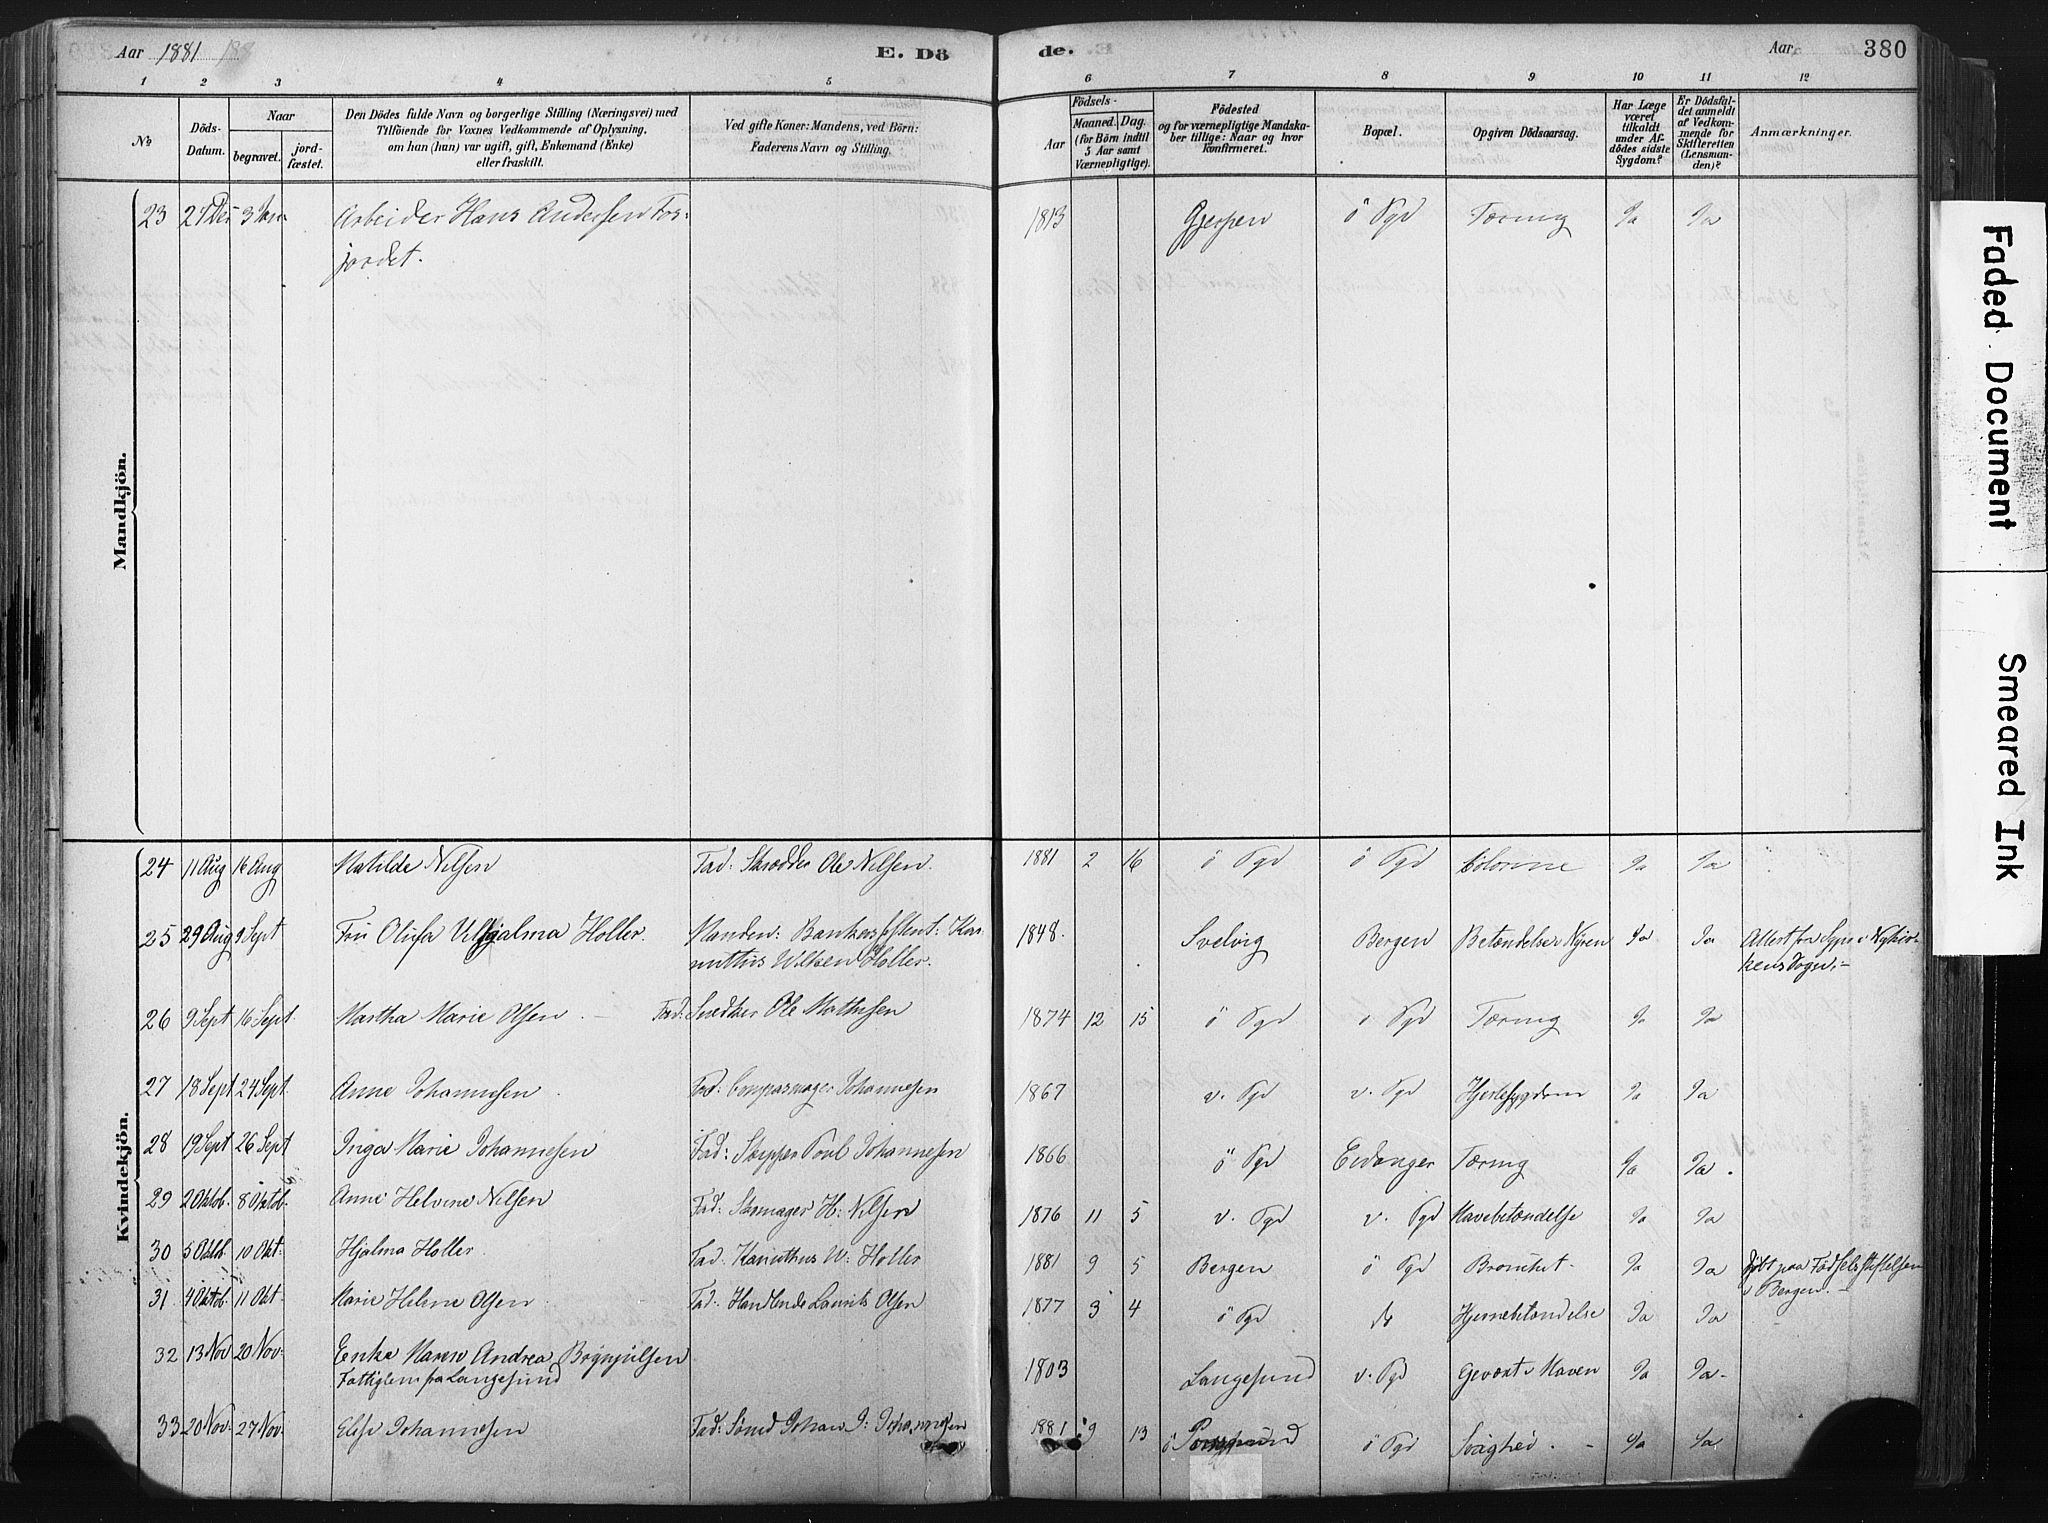 Aar 1881 188
E. Dö
de.
Aar
380
1 2 3 4 5 6 7 8 9 10 11 12
No
Döds-
Datum.
Naar
begravet.
jord-
fæstet.
Den Dödes fulde Navn og borgerlige Stilling (Næringsvei) med
Tilföiende for Voxnes Vedkommende af Oplysning,
om han (hun) var ugift, gift, Enkemand (Enke)
eller fraskilt.
Ved gifte Koner: Mandens, ved Börn:
Faderens Navn og Stilling.
Födsels-
Aar
Maaned. Dag.
(for Börn indtil
5 Aar samt
Værnepligtige).
Födested
og for værnepligtige Mandska-
ber tillige: Naar og hvor
konfirmeret.
Bopæl.
Opgiven Dödsaarsag.
Har Læge
været
tilkaldt
under Af-
dödes sidste
Sygdom?
Er Dödsfal-
det anmeldt
af Vedkom-
mende for
Skifteretten
(Lensman-
den)?
Anmærkninger.
Mandkjön.
23 27 Des 3 Jan Arbeider Hans Andersen Fos- 1813 Gjerpen ö Pgd Tæring Ja Ja
jordet.
Kvindekjön.
24 11 Aug 16 Aug Matilde Nilsen Fad: Skrædder Ole Nilsen. 1881 2 16 ö Pgd ö Pgd Colorine Ja Ja
25 29 Aug 9 Sept Fru Olufa Vilhjalma Holler. Manden: Bankassistent: Kar- 1848. Svelvig Bergen Betændelse i Nyren Ja Ja Attest fra Sypr i Nykir-
nuttus Wilsen Holler. kens Sogn.-
26 9 Sept 16 Sept. Martha Marie Olsen. Fad: Snedker Ole Mathisen 1874 12 15 ö Pgd ö Pgd Tæring Ja Ja
27 18 Sept 24 Sept Anne Johannesen Fad: Compasmager Johannesen 1867 v. Pgd v. Pgd Hjertesygdom Ja Ja
28 19 Sept 26 Sept Inga Marie Johannesen Fad: Skipper Poul Johannesen 1866 ö Pgd Eidanger Tæring Ja Ja.
29 2 Oktob. 8 Oktob. Anne Helvine Nilsen Fad: Skomager H: Nilsen 1876 11 5 v. Pgd v. Pgd Mavebetændelse Ja Ja
30 5 Oktb. 10 Okt: Hjalma Holler. Fad. Kanuthus W: Holler 1881 9 5 Bergen ö Pgd Bronchit. Ja Ja Döbt paa Födselsstiftelsen
i Bergen.-
31 4 Oktob. 11 Okt. Marie Helene Olsen. Fad: Handlende Laurits Olsen 1877 3 4 ö Pgd do Hjernebetændelse Ja Ja
32 13 Nov 20 Nov: Enke Maren Andrea Brynjulsen 1803 Langesund v. Pgd Gevæxt i Maven Ja Ja.
Fattiglem fra Langesund
33 20 Nov: 27 Nov: Elise Johannesen Fad: Sömd Johan J: Johannesen 1881 9 13 ö Porsgrund ö Pgd Svaghed. Ja Ja
Faded Document
Smeared Ink